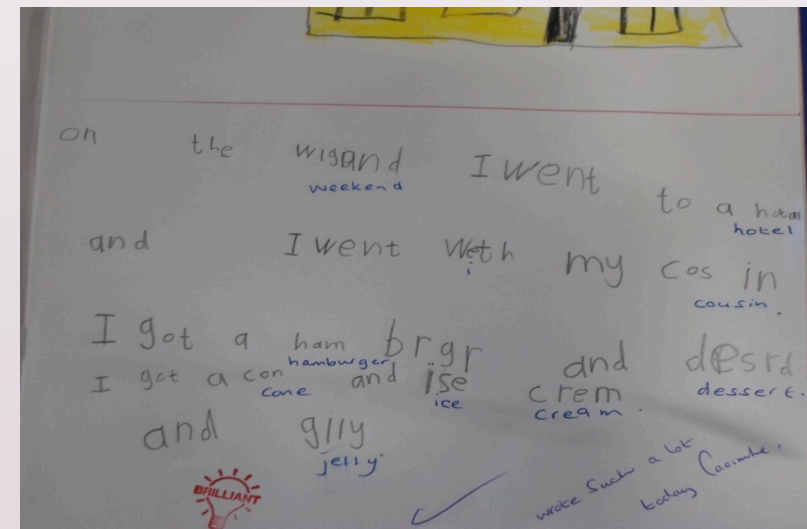 on the wigand I went to a hotal
weekend hotel
and I went weth my cos in
i cousin.
I got a ham brgr and desrd
hamburger dessert.
I got a con and ise crem
cone ice cream.
and gilly
jelly.
BRILLIANT
wrote such a lot
today Caoimhe.